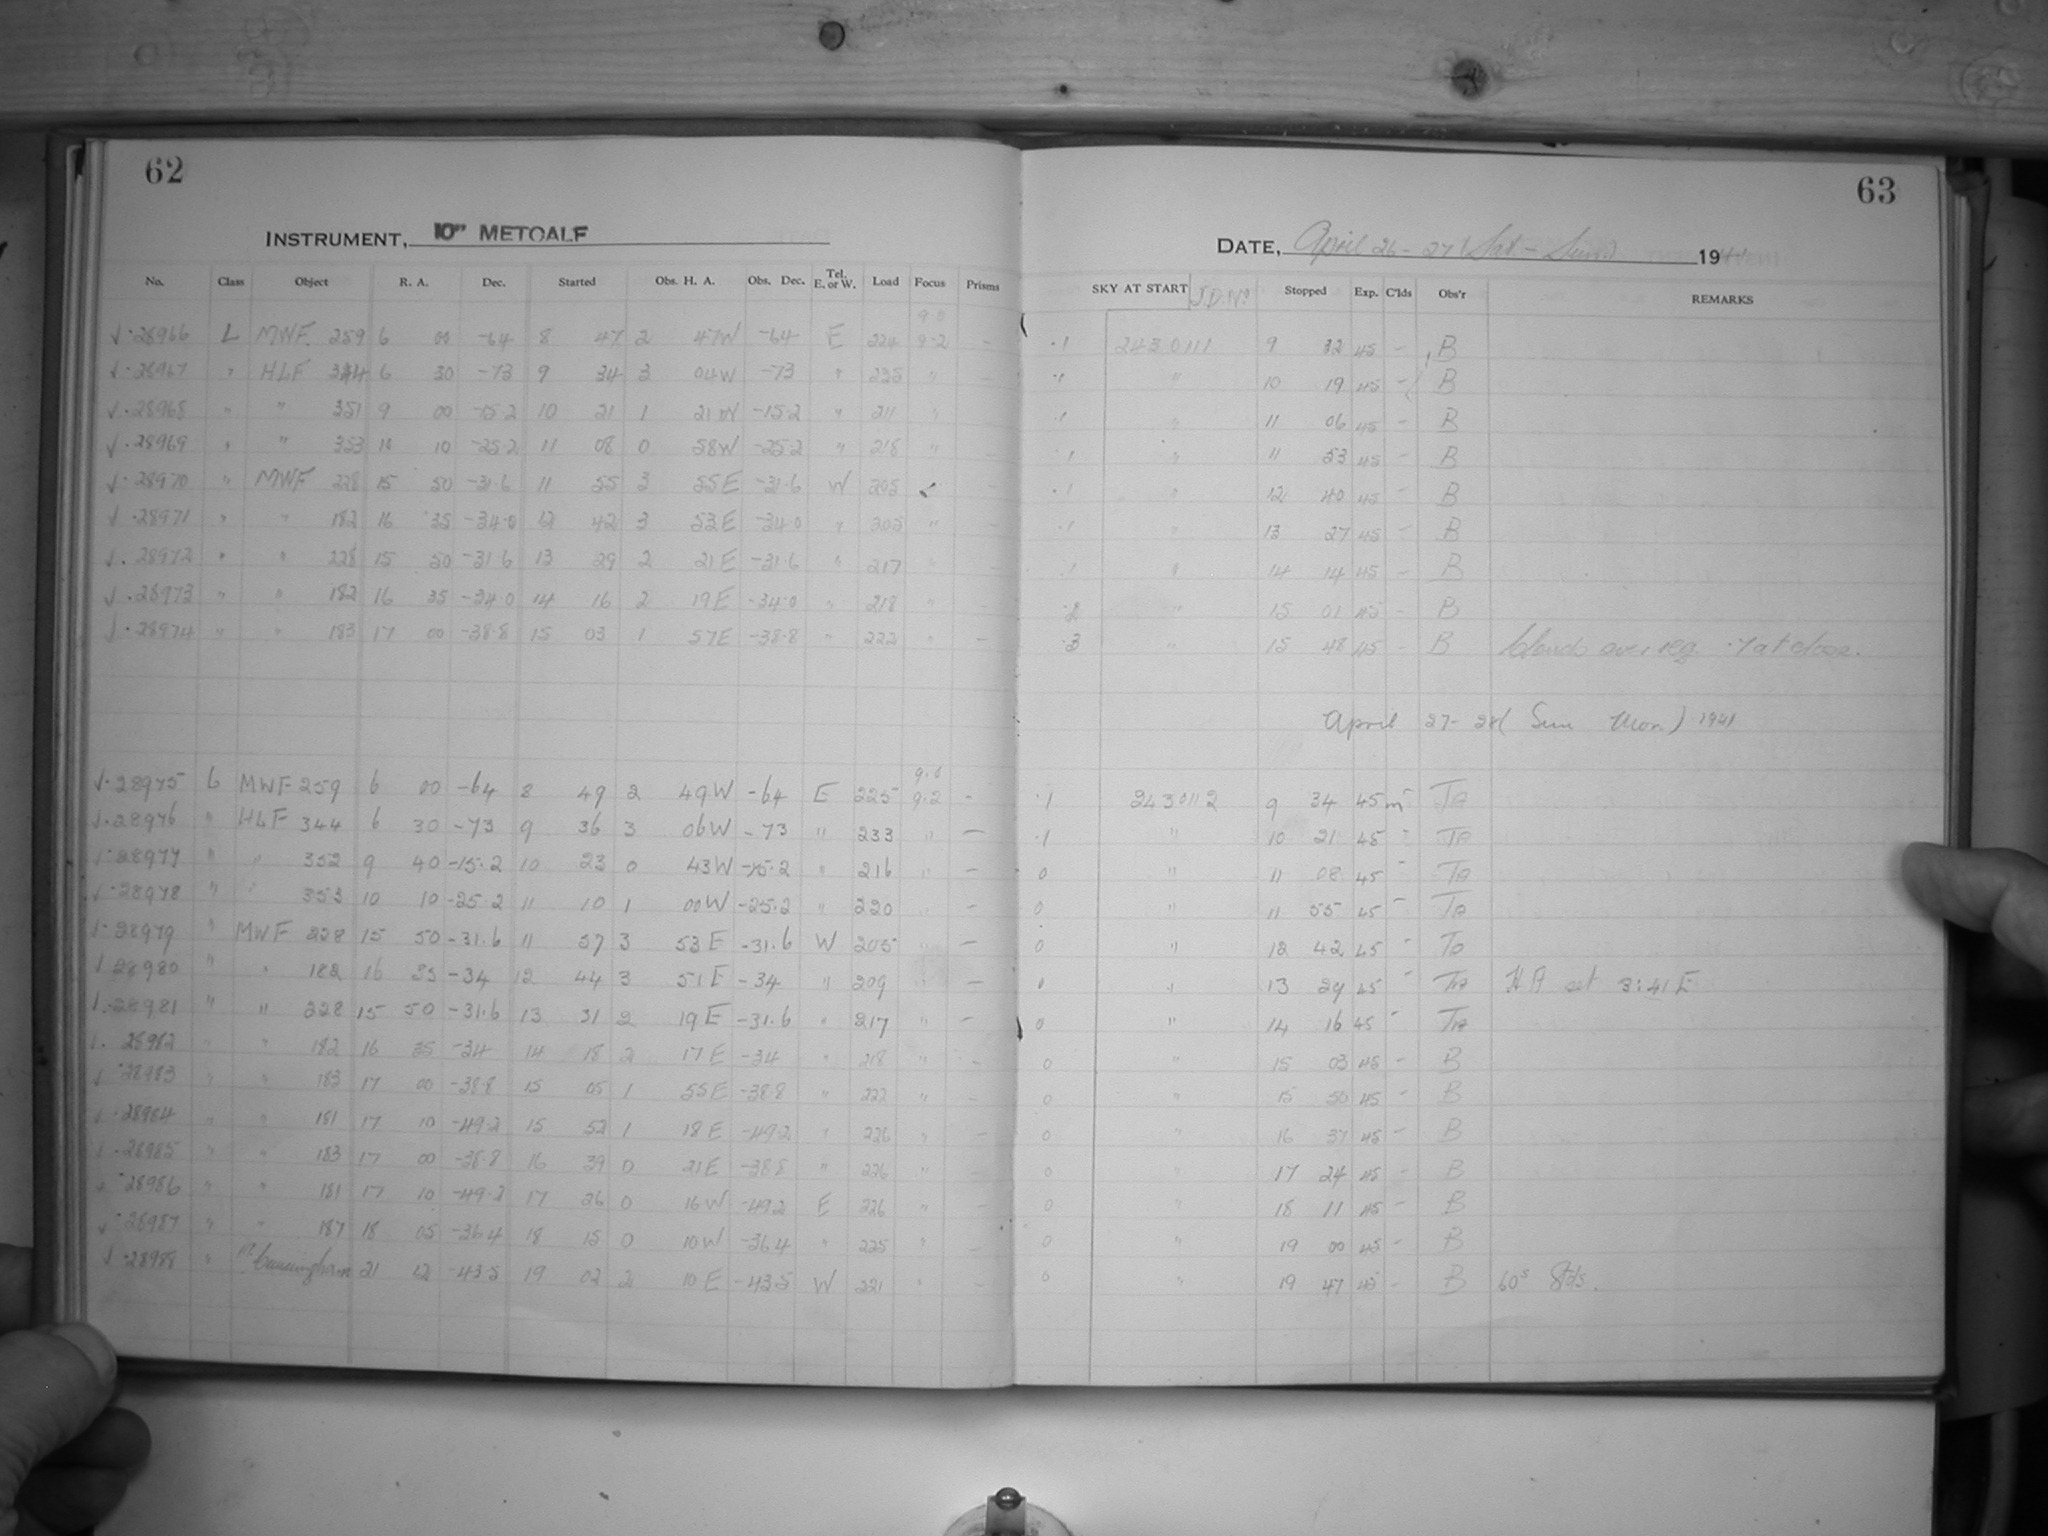 62
INSTRUMENT, 10" METCALF
No. Class Object R. A. Dec. Started Obs. H. A. Obs. Dec. Tel. E. or W. Load Focus Prisms
√·28966 L MWF. 259 6 00 -64 8 47 2 47W -64 E 224 9·2 -
√·28967 " HLF 344 6 30 -73 9 34 3 04W -73 " 235 "
√·28968 " " 351 9 00 -15·2 10 21 1 21W -15·2 " 211 "
√·28969 " " 353 10 10 -25·2 11 08 0 58W -25·2 " 218 "
√·28970 " MWF 228 15 50 -31·6 11 55 3 55E -31·6 W 205
√·28971 " " 182 16 35 -34·0 12 42 3 53E -34·0 " 205 " -
√·28972 " " 228 15 50 -31·6 13 29 2 21E -31·6 " 217 " -
√·28973 " " 182 16 35 -34·0 14 16 2 19E -34·0 " 218 " -
√·28974 " " 183 17 00 -38·8 15 03 1 57E -38·8 " 222 " -
√·28975 L MWF 259 6 00 -64 8 49 2 49W -64 E 225 9.2 -
√·28976 " HLF 344 6 30 -73 9 36 3 06W -73 " 233 " -
√·28977 " " 352 9 40 -15.2 10 23 0 43W -15.2 " 216 " -
√·28978 " " 353 10 10 -25.2 11 10 1 00W -25.2 " 220 " -
√·28979 " MWF 228 15 50 -31.6 11 57 3 53E -31.6 W 205 " -
√·28980 " " 182 16 35 -34 12 44 3 51E -34 " 209 " -
√·28981 " " 228 15 50 -31.6 13 31 2 19E -31.6 " 217 " -
√·28982 " " 182 16 35 -34 14 18 2 17E -34 " 218 " -
√·28983 " " 183 17 00 -38·8 15 05 1 55E -38·8 " 222 " -
√·28984 " " 181 17 10 -49·2 15 52 1 18E -49·2 " 226 " -
√·28985 " " 183 17 00 -38·8 16 39 0 21E -38·8 " 226 " -
√·28986 " " 181 17 10 -49·2 17 26 0 16W -49·2 E 226 " -
√·28987 " " 187 18 05 -36·4 18 15 0 10W -36·4 " 225 " -
√·28988 " Cunningham 21 12 -43·5 19 02 2 10E -43·5 W 221 " -
63
DATE, April 26-27 (Sat - Sun) 1941
SKY AT START J.D. No. Stopped Exp. C'lds Obs'r REMARKS
·1 2430111 9 32 45 - B
·1 " 10 19 45 - B
·1 " 11 06 45 - B
·1 " 11 53 45 - B
·1 " 12 40 45 - B
·1 " 13 27 45 - B
·1 " 14 14 45 - B
·2 " 15 01 45 - B
·3 " 15 48 45 - B Clouds over reg. ·7 at close.
April 27-28 (Sun Mon) 1941
·1 2430112 9 34 45m TA
·1 " 10 21 45 - TA
0 " 11 08 45 - TA
0 " 11 55 45 - TA
0 " 12 42 45 - TA
0 " 13 29 45 - TA HA set 3:41 E
0 " 14 16 45 - TA
0 " 15 03 45 - B
0 " 15 50 45 - B
0 " 16 37 45 - B
0 " 17 24 45 - B
0 " 18 11 45 - B
0 " 19 00 45 - B
0 " 19 47 45 - B 60s Stds.